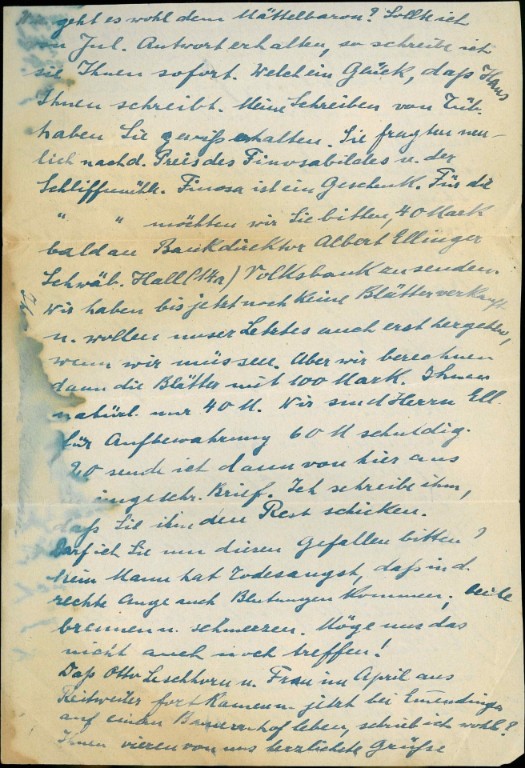 Wie geht es wohl dem Mättelbaron? Sollte ich
im Jul. Antwort erhalten, so schreibe ich
sie Ihnen sofort. Welch ein Glück, daß Hans
Ihnen schreibt. Meine Schreiben von Tüb.
haben Sie gewiß erhalten. Sie fragten neu-
lich nach d. Preis des Finosabildes u. der
Schliffmühle. Finosa ist ein Geschenk. Für die
" " möchten wir Sie bitten, 40 Mark
bald an Bankdirektor Albert Ellinger
Schwäb. Hall (14a) Volksbank zu senden.
Wir haben bis jetzt noch keine Blätter verkauft
u. wollen unser Letztes auch erst hergeben,
wenn wir müssen. Aber wir berechnen
dann die Blätter mit 100 Mark. Ihnen
natürl. nur 40 M. Wir sind Herrn Ell.
für Aufbewahrung 60 M schuldig.
20 sende ich dann von hier aus
eingeschr. Brief. Ich schreibe ihm,
daß Sie ihm den Rest schicken.
Darf ich Sie um diesen Gefallen bitten?
Mein Mann hat Todesangst, daß in d.
rechte Auge auch Blutungen kommen, beide
brennen u. schmerzen. Möge uns das
nicht auch noch treffen!
Daß Otto Leschhorn u. Frau im April aus
fort kamen u. jetzt bei Emendingen
auf einem Bauernhof leben, schrieb ich wohl?
Ihnen vieren von uns herzlichste Grüße